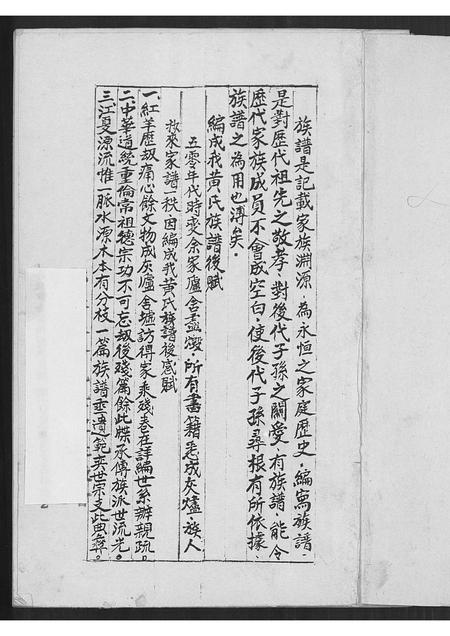 族譜是記載家族淵源，為永恒之家庭歷史，編寫族譜，
是對歷代祖先之敬孝，對後代子孫之關愛，有族譜，能令
歷代家族成員不會成空白，使後代子孫尋根有所依據，
族譜之為用也溥矣。
編成我黄氏族譜後賦
五零年代時變余家廬舍盡燬，所有書籍悉成灰燼，族人
拾來家譜一秩，因編成我黄氏族譜後感賦
一、紅羊歷刼痛心餘文物成灰廬舍墟訪得家乘殘卷在詳編世系辦親疏。
二、中華道統重倫常祖德宗功不可忘刼後殘篇餘此牒承傳族派世流光。
三、江夏源流惟一脈水源木本有分枝一篇族譜垂遺範奕世宗支此典彝。